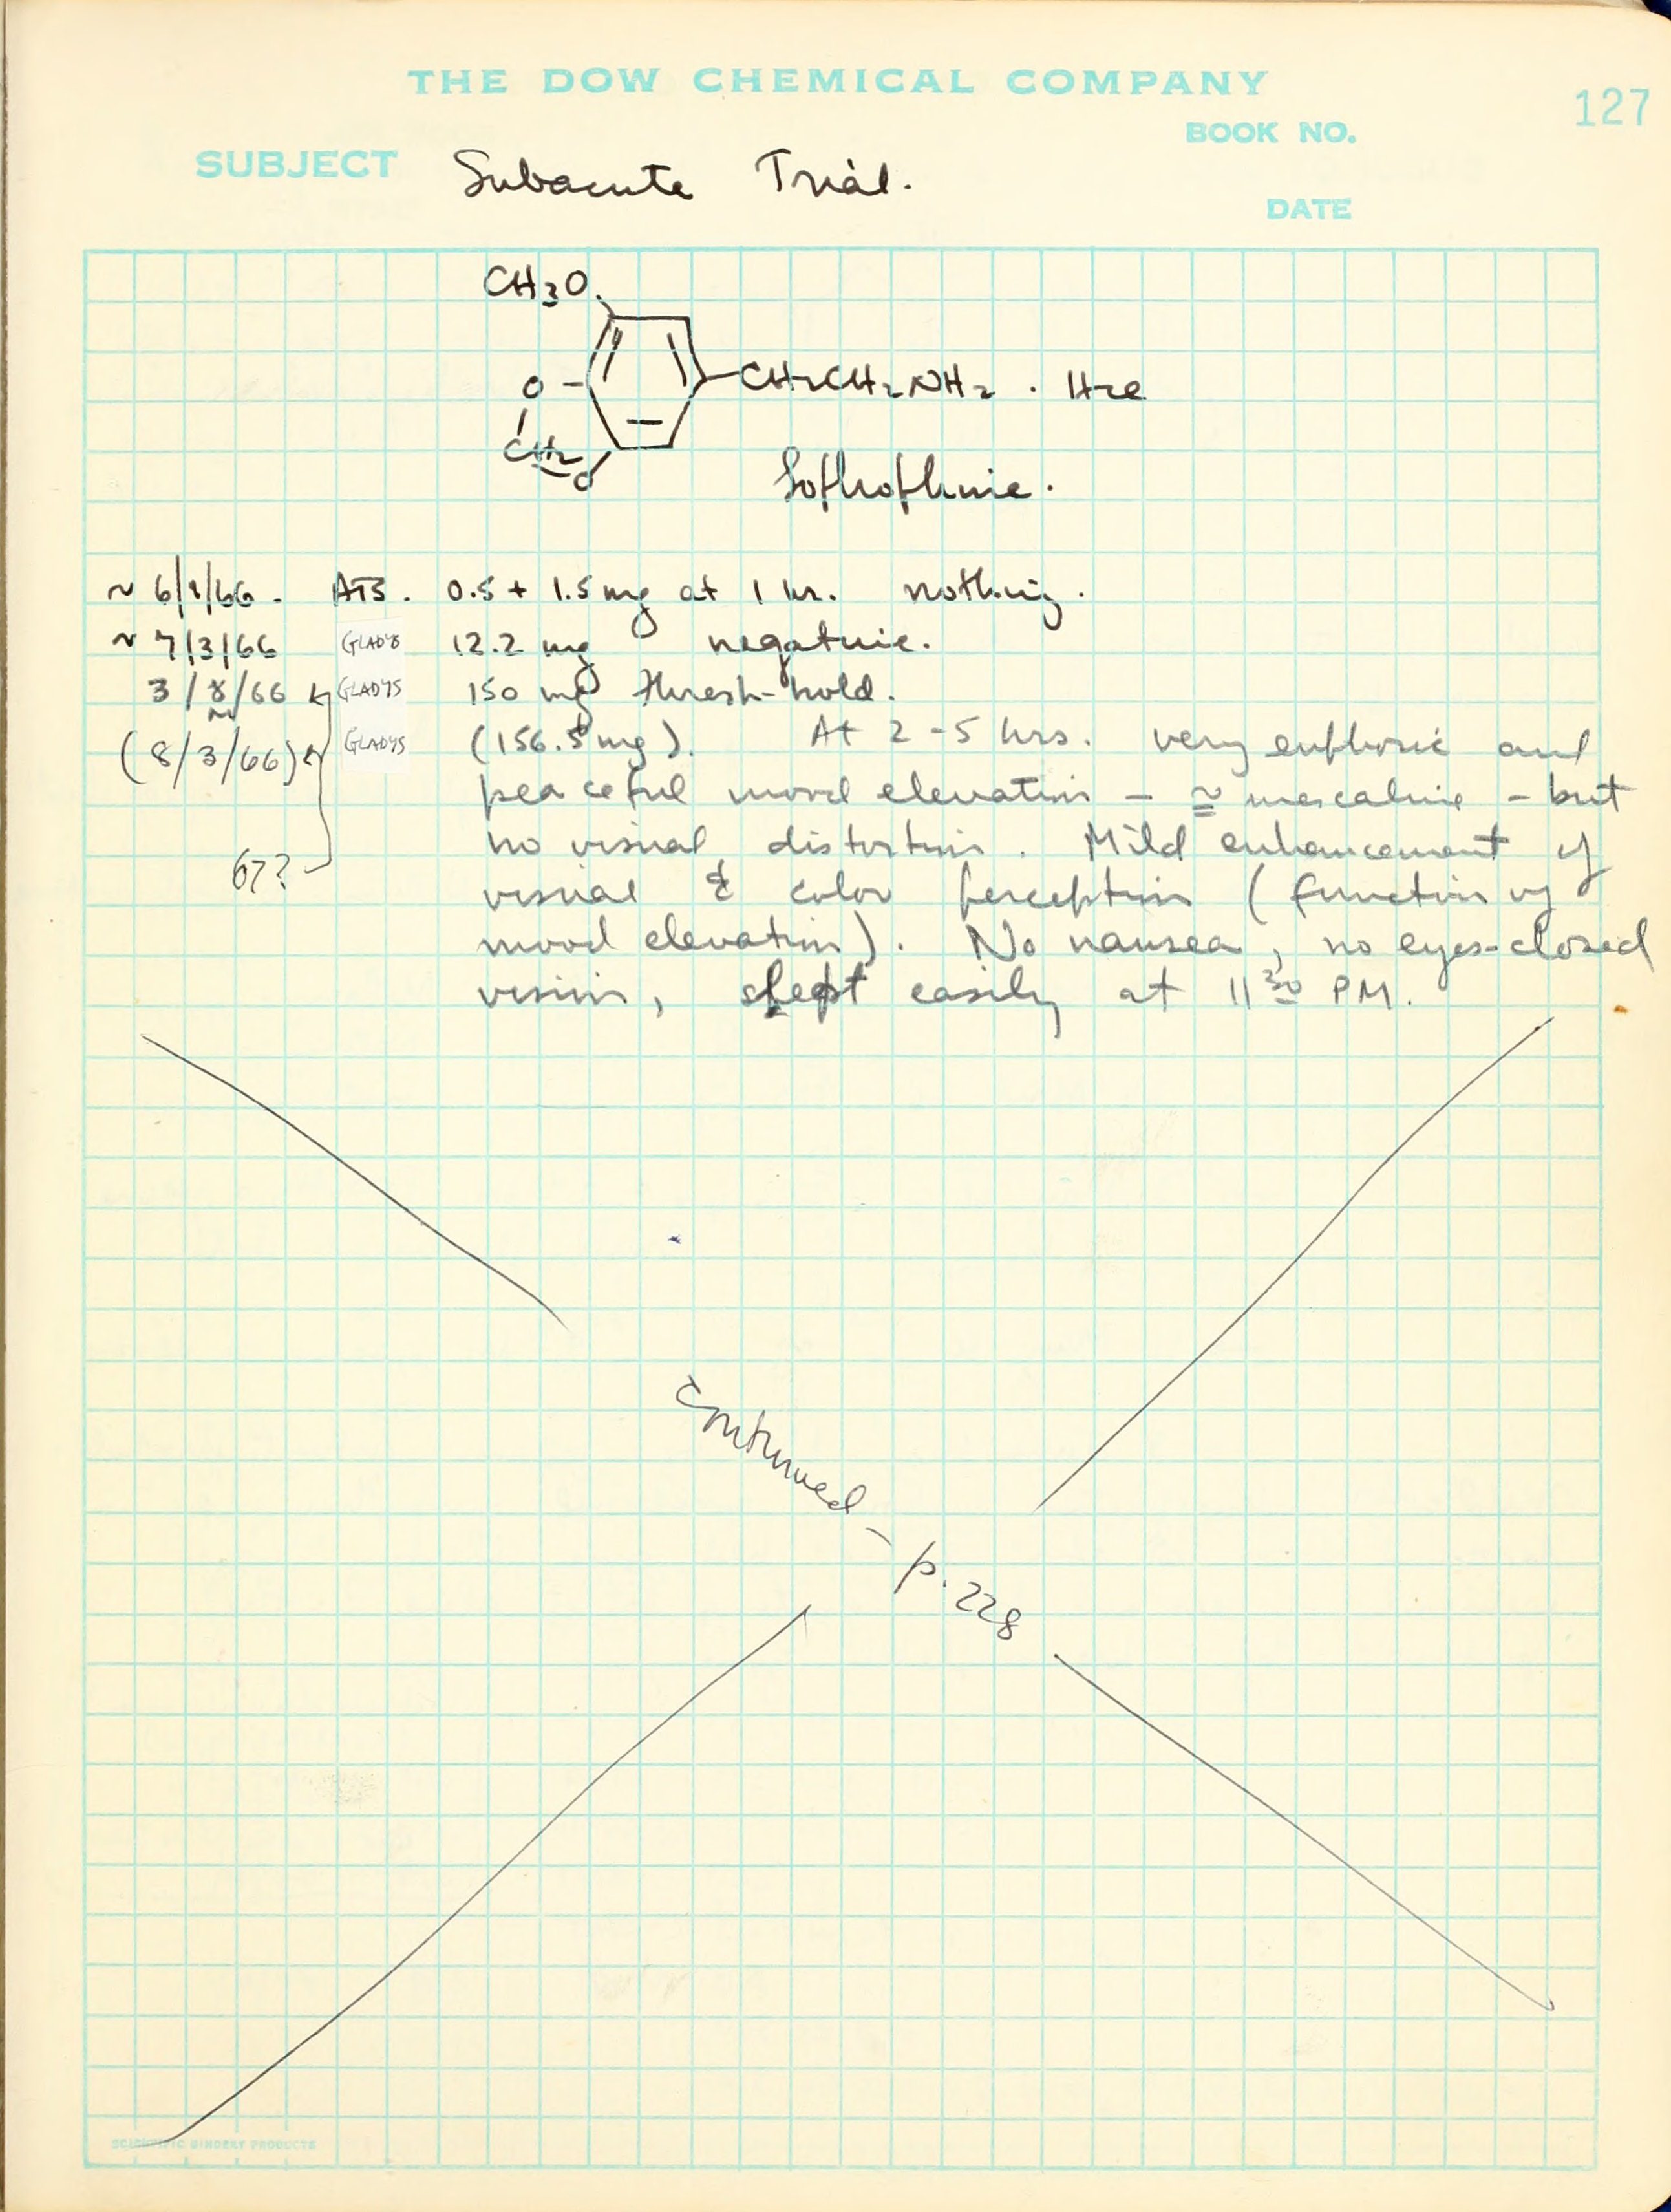 THE DOW CHEMICAL COMPANY
127
BOOK NO.
SUBJECT Subacute Trial.
DATE
CH3O
O CH2CH2NH2 . HCl
CH2
O
Lophophine.
~ 6/1/66. ATS. 0.5 + 1.5 mg at 1 hr. nothing.
~ 7/3/66 GLADYS 12.2 mg negative.
3/8/66 GLADYS 150 mg thresh-hold.
(8/3/66) GLADYS (156.5 mg). At 2-5 hrs. very euphoric and
peaceful mood elevation - ≅ mescaline - but
no visual distortion. Mild enhancement of
67? visual & color perception (function of
mood elevation). No nausea, no eyes-closed
vision, slept easily at 11 30 PM.
Continued - p. 228
SCIENTIFIC BINDERY PRODUCTS